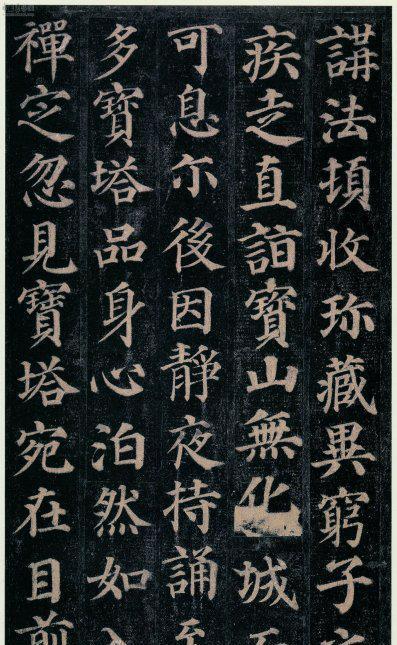 講法頓收珎藏異窮子
疾走直詣寶山無化城
可息尒後因靜夜持誦至
多寶塔品身心泊然如
禪定忽見寶塔宛在目前